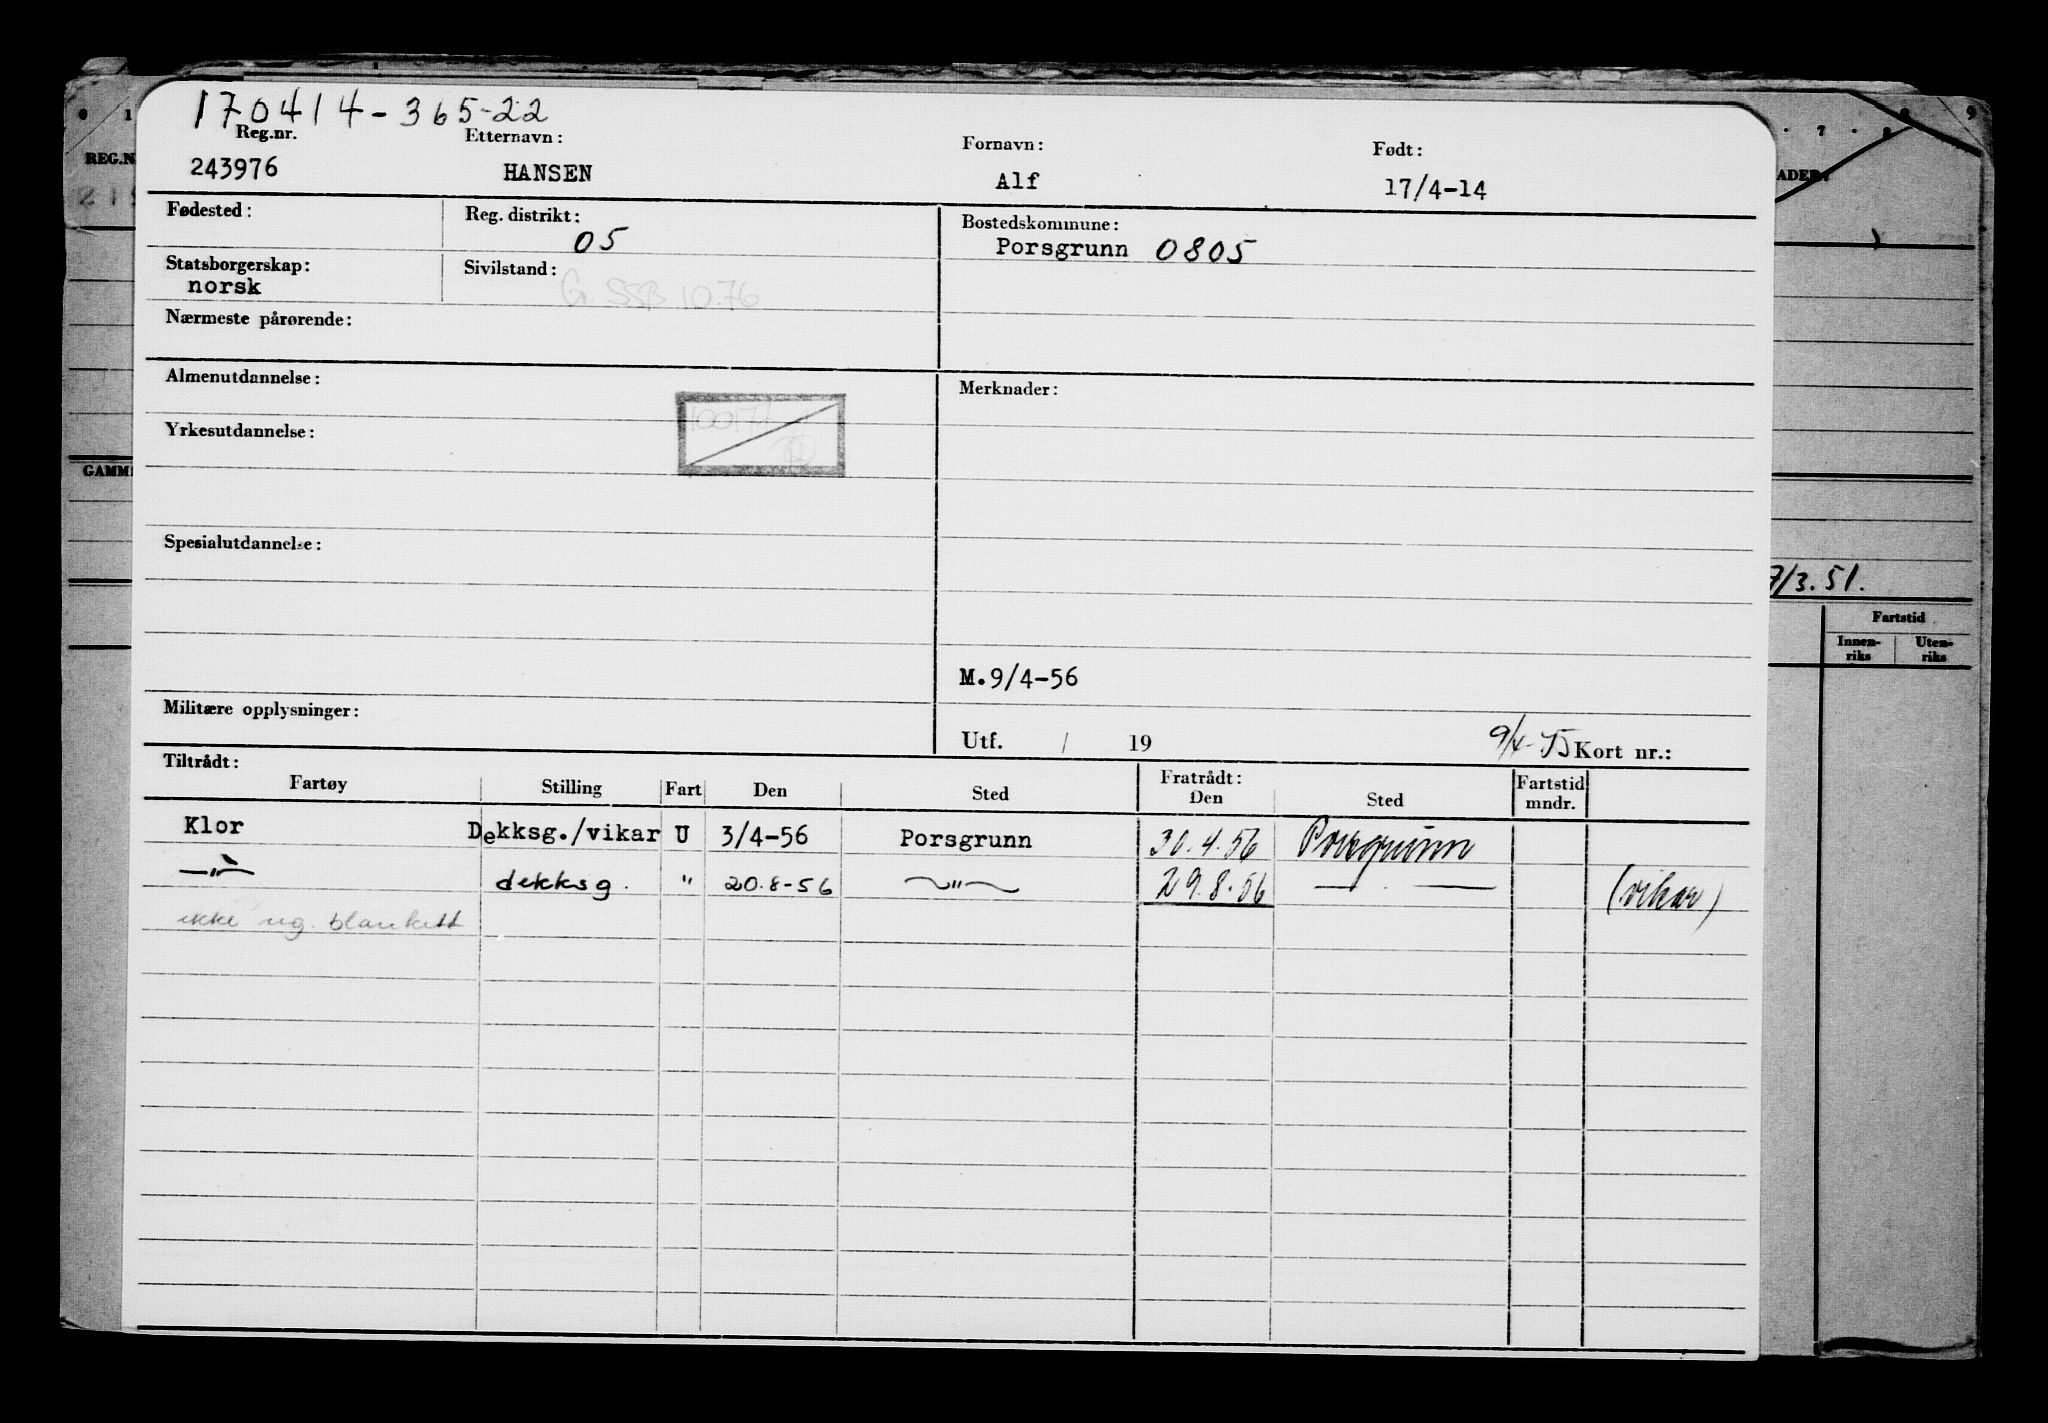 170414-365-22
Reg.nr. Etternavn: Fornavn: Født:
243976 HANSEN Alf 17/4-14
Fødested: Reg. distrikt: Bostedskommune:
05 Porsgrunn 0805
Statsborgerskap: Sivilstand:
norsk G. SSB 10.76
Nærmeste pårørende:
Almenutdannelse: Merknader:
Yrkesutdannelse:
Spesialutdannelse:
M.9/4-56
Militære opplysninger:
Utf. / 19 Kort nr.:
Tiltrådt: Fratrådt:
Fartøy Stilling Fart Den Sted Den Sted Fartstid mndr.
Klor Dekksg./vikar U 3/4-56 Porsgrunn 30.4.56 Porsgrunn
—"— dekksg. " 20.8-56 —"— 29.8.56 — . — (vikar)
ikke blankett
0 1
REG.N
GAMM
7 8 9
ADER:
7/3.51.
Fartstid
Innen-riks Uten-riks